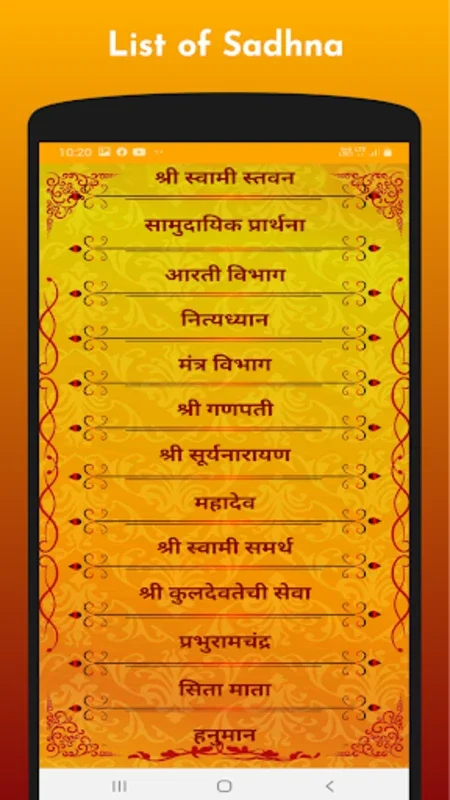 List of Sadhna
10:20
श्री स्वामी स्तवन
सामुदायिक प्रार्थना
आरती विभाग
नित्यध्यान
मंत्र विभाग
श्री गणपती
श्री सूर्यनारायण
महादेव
श्री स्वामी समर्थ
श्री कुलदेवतेची सेवा
प्रभुरामचंद्र
सिता माता
हनुमान